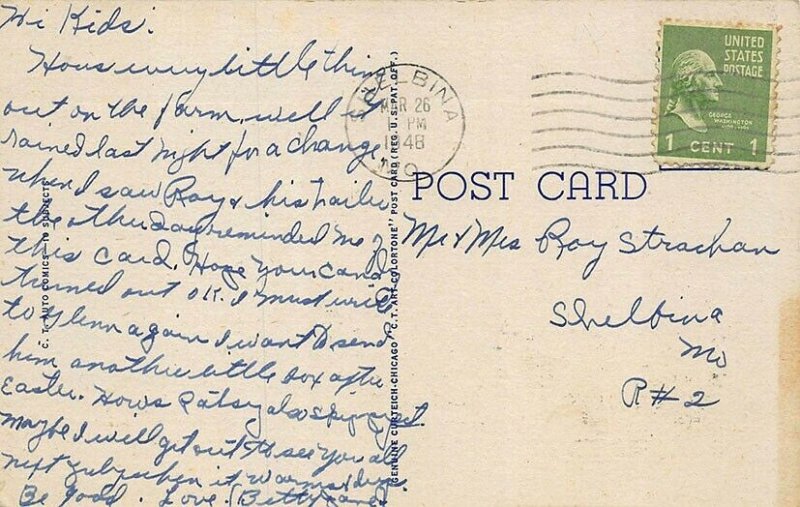 Hi Kids:
Hows every little thing
out on the farm, well it
rained last night for a change,
when I saw Roy & his trailer
the other day reminded me of
this card. Hope your candy
turned out OK. I must write
to Glenn again I want to send
him another little box after
Easter. Hows Patsy also
Maybe I will get out to see you all
next when it warms &
Be Good. Love. Betty
C. T. AUTO COMICS—10 SUBJECTS
GENUINE CURTEICH-CHICAGO "C. T. ART-COLORTONE" POST CARD (REG. U. S. PAT. OFF.)
SHELBINA
MAR 26
PM
1948
MO.
UNITED
STATES
POSTAGE
GEORGE
WASHINGTON
1 CENT 1
POST CARD
Mr & Mrs Roy Strachan
Shelbina
Mo
R#2